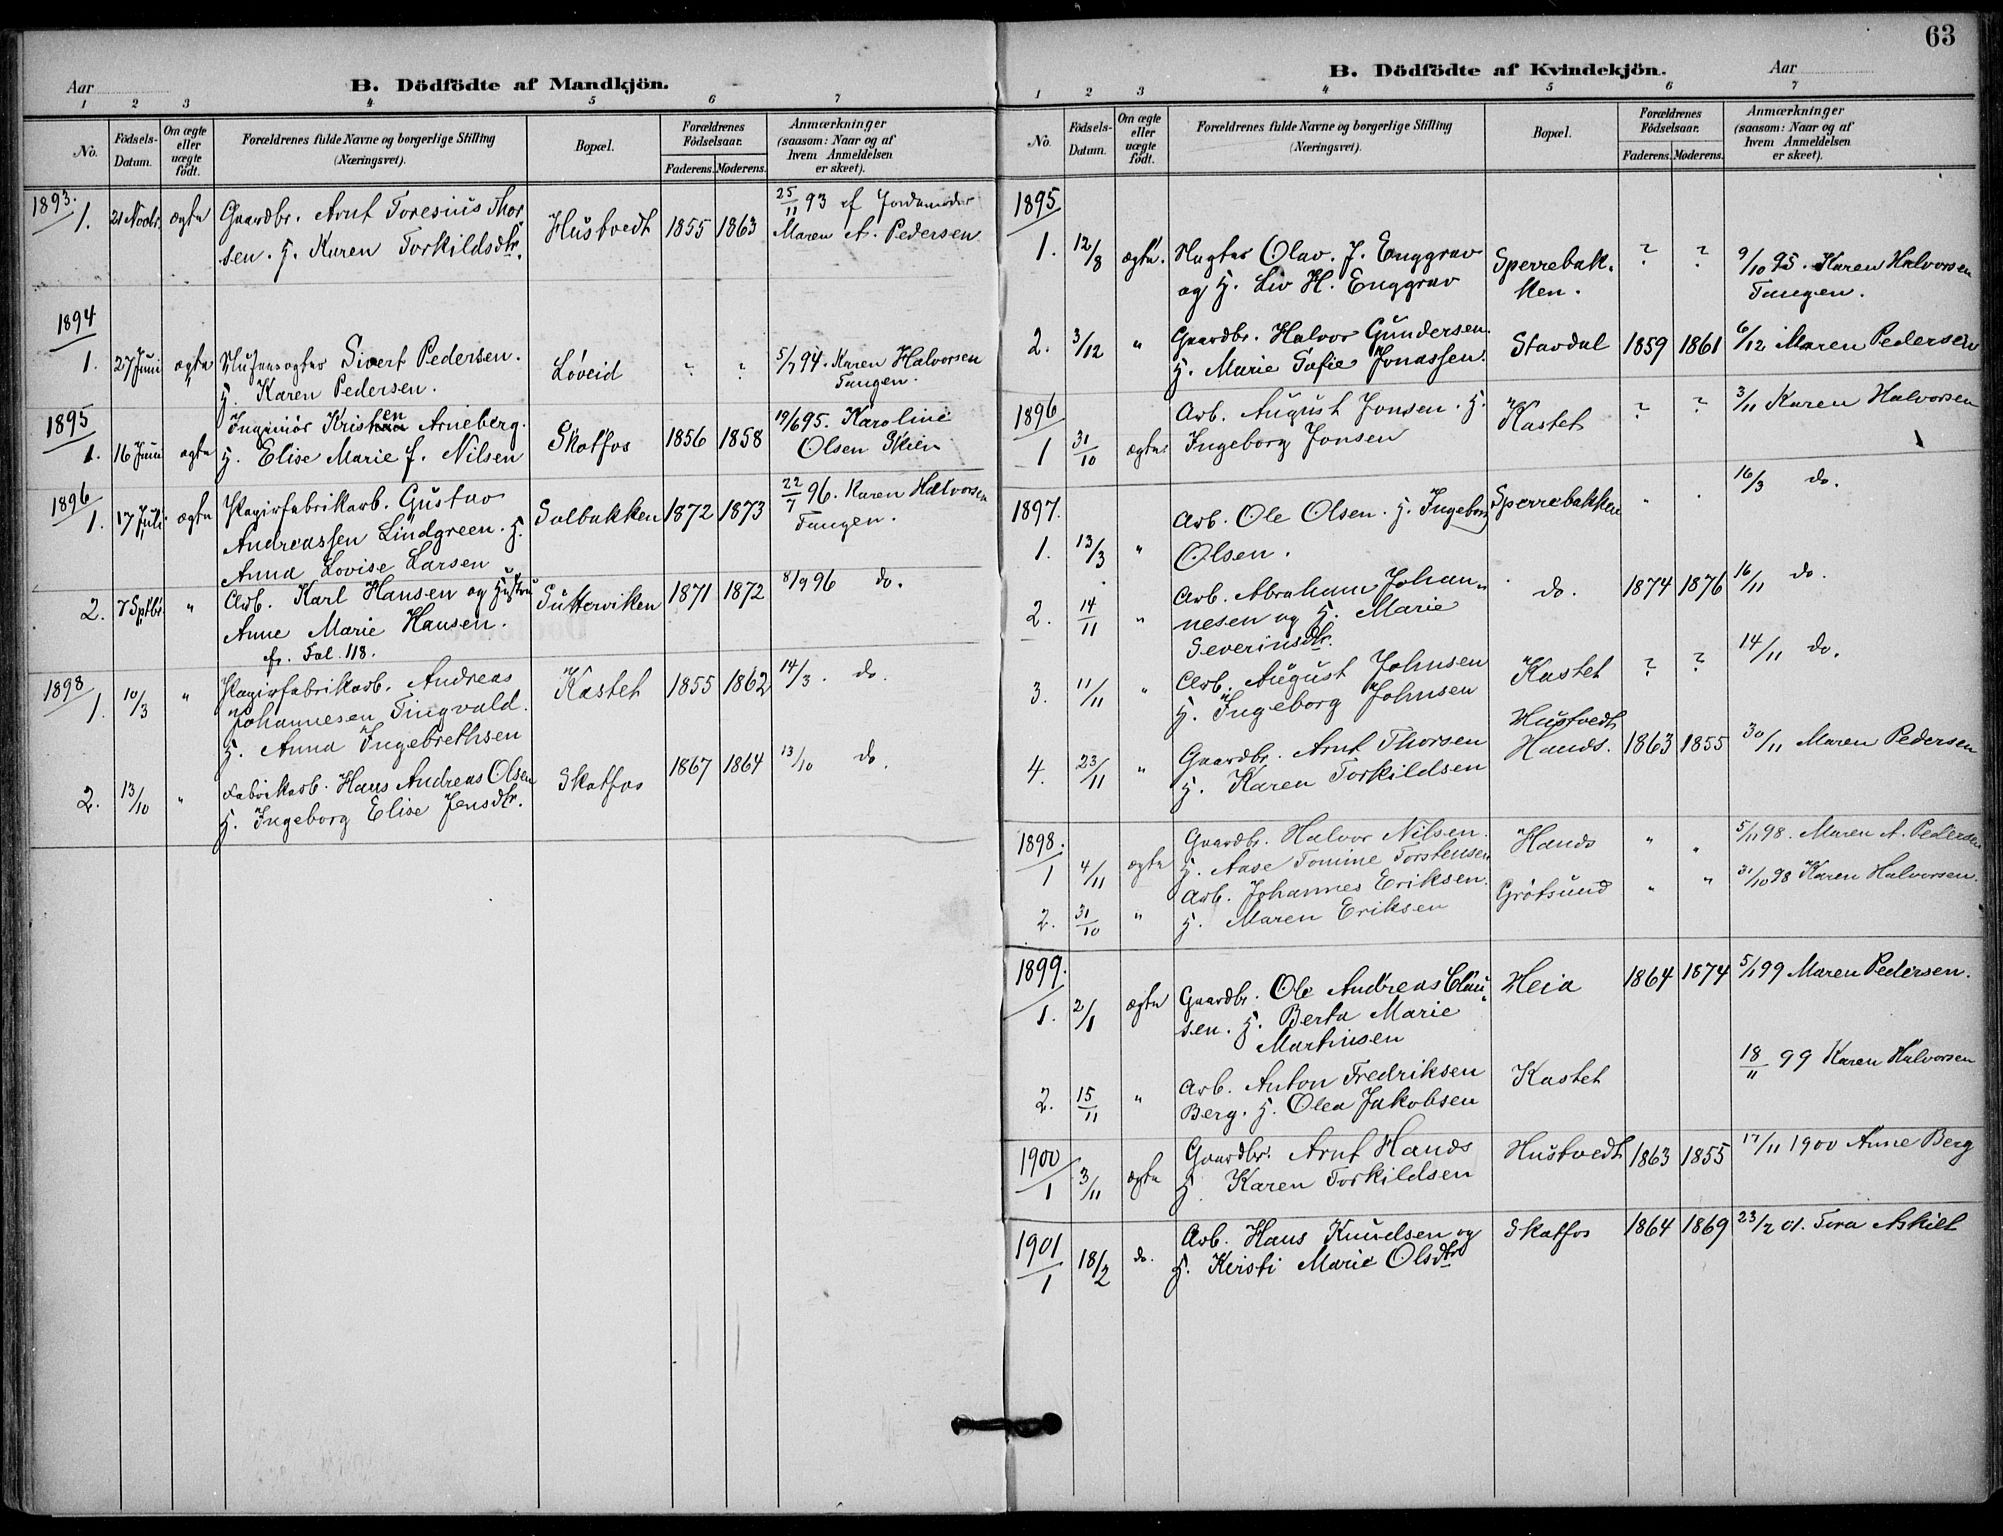 63
Aar
B. Dödfödte af Mandkjön.
1 2 3 4 5 6 7
No.
Födsels-Datum.
Om ægte eller uægte födt.
Forældrenes fulde Navne og borgerlige Stilling
(Næringsvei).
Bopæl.
Forældrenes Födselsaar.
Faderens. Moderens.
Anmærkninger
(saasom: Naar og af
hvem Anmeldelsen
er skeet).
1893.
1. 21 Novbr. ægte Gaardbr. Arnt Toresius Thor Hustvedt 1855 1863 25/11 93 af Jordemoder
sen. H. Karen Torkildsdtr. Maren A. Pedersen
1894
1. 27 Juni ægte Slusevogter Sivert Pedersen. Løveid ? ? 5/7 94. Karen Halvorsen
H. Karen Pedersen. Tangen.
1895
1. 16 Juni ægte Ingeniør Kristen Arneberg. Skotfos 1856 1858 19/6 95. Karoline
H. Elise Marie f. Nilsen Olsen Skien
1896
1. 17 Juli ægte Papirfabrikarb. Gustav Solbakken 1872 1873 22/7 96. Karen Halvorsen
Andreassen Lindgreen. H. Tangen.
Anna Lovise Larsen
2. 7 Septbr. " Arb. Karl Hansen og Hustru Sutterviken 1871 1872 8/9 96 do.
Anne Marie Hansen.
cfr. Fol. 118.
1898
1. 10/3 " Papirfabrikarb. Andreas Kastet 1855 1862 14/3. do.
Johannesen Tingvald.
H. Anna Ingebrethsen
2. 13/10 " Fabrikarb. Hans Andreas Olsen Skotfos 1867 1864 13/10 do.
H. Ingeborg Elise Jensdtr.
B. Dödfödte af Kvindekjön.
Aar
1 2 3 4 5 6 7
No.
Födsels-Datum.
Om ægte eller uægte födt.
Forældrenes fulde Navne og borgerlige Stilling
(Næringsvei).
Bopæl.
Forældrenes Födselsaar.
Faderens. Moderens.
Anmærkninger
(saasom: Naar og af
hvem Anmeldelsen
er skeet).
1895
1. 12/8 ægte. Olav. J. Enggrav Sperrebak- ? ? 9/10 95. Karen Halvorsen
og H. Liv H. Enggrav ken. Tangen.
2. 3/12 " Gaardbr. Halvor Gundersen. Stavdal 1859 1861 6/12 Maren Pedersen
H. Marie Sofie Jonassen.
1896 Arb. August Jonsen. H. Kastet ? ? 3/11 Karen Halvorsen
1 31/10 ægte. Ingeborg Jonsen
1897. Arb. Ole Olsen. H. Ingeborg Sperrebakken " " 16/3 do.
1. 13/3 " Olsen.
2. 14/11 " Arb. Abraham Johan- do. 1874 1876 16/11 do.
nesen og H. Marie
Severinsdtr.
3. 11/11 " Arb. August Johnsen Kastet ? ? 14/11 do.
H. Ingeborg Johnsen
Hustvedt
4. 23/11 " Gaardbr. Arnt Thorsen Hands. 1863 1855 30/11 Maren Pedersen
H. Karen Torkildsen
1898. Gaardbr. Halvor Nilsen. Hands " " 5/11 98. Maren A. Pedersen
1 4/11 ægte H. Aase Tomine Torstensen
2. 31/10 " Arb. Johannes Eriksen. Grötsund " " 31/10 98 Karen Halvorsen.
H. Maren Eriksen
1899.
1. 2/1 ægte Gaardbr. Ole Andreas Clau- Heia 1864 1874 5/1 99 Maren Pedersen.
sen. H. Berta Marie
Martinsen
2. 15/11 " Arb. Anton Fredriksen Kastet 18/11 99 Karen Halvorsen
Berg. H. Olea Jakobsen
1900 Gaardbr. Arnt Hands Hustvedt 1863 1855 17/11 1900 Anne Berg
1 3/11 ægte H. Karen Torkildsen
1901 Arb. Hans Knudsen og Skotfos 1864 1869 23/2 01. Tora Askilt
1 18/2 do. H. Kirsti Marie Olsdtr